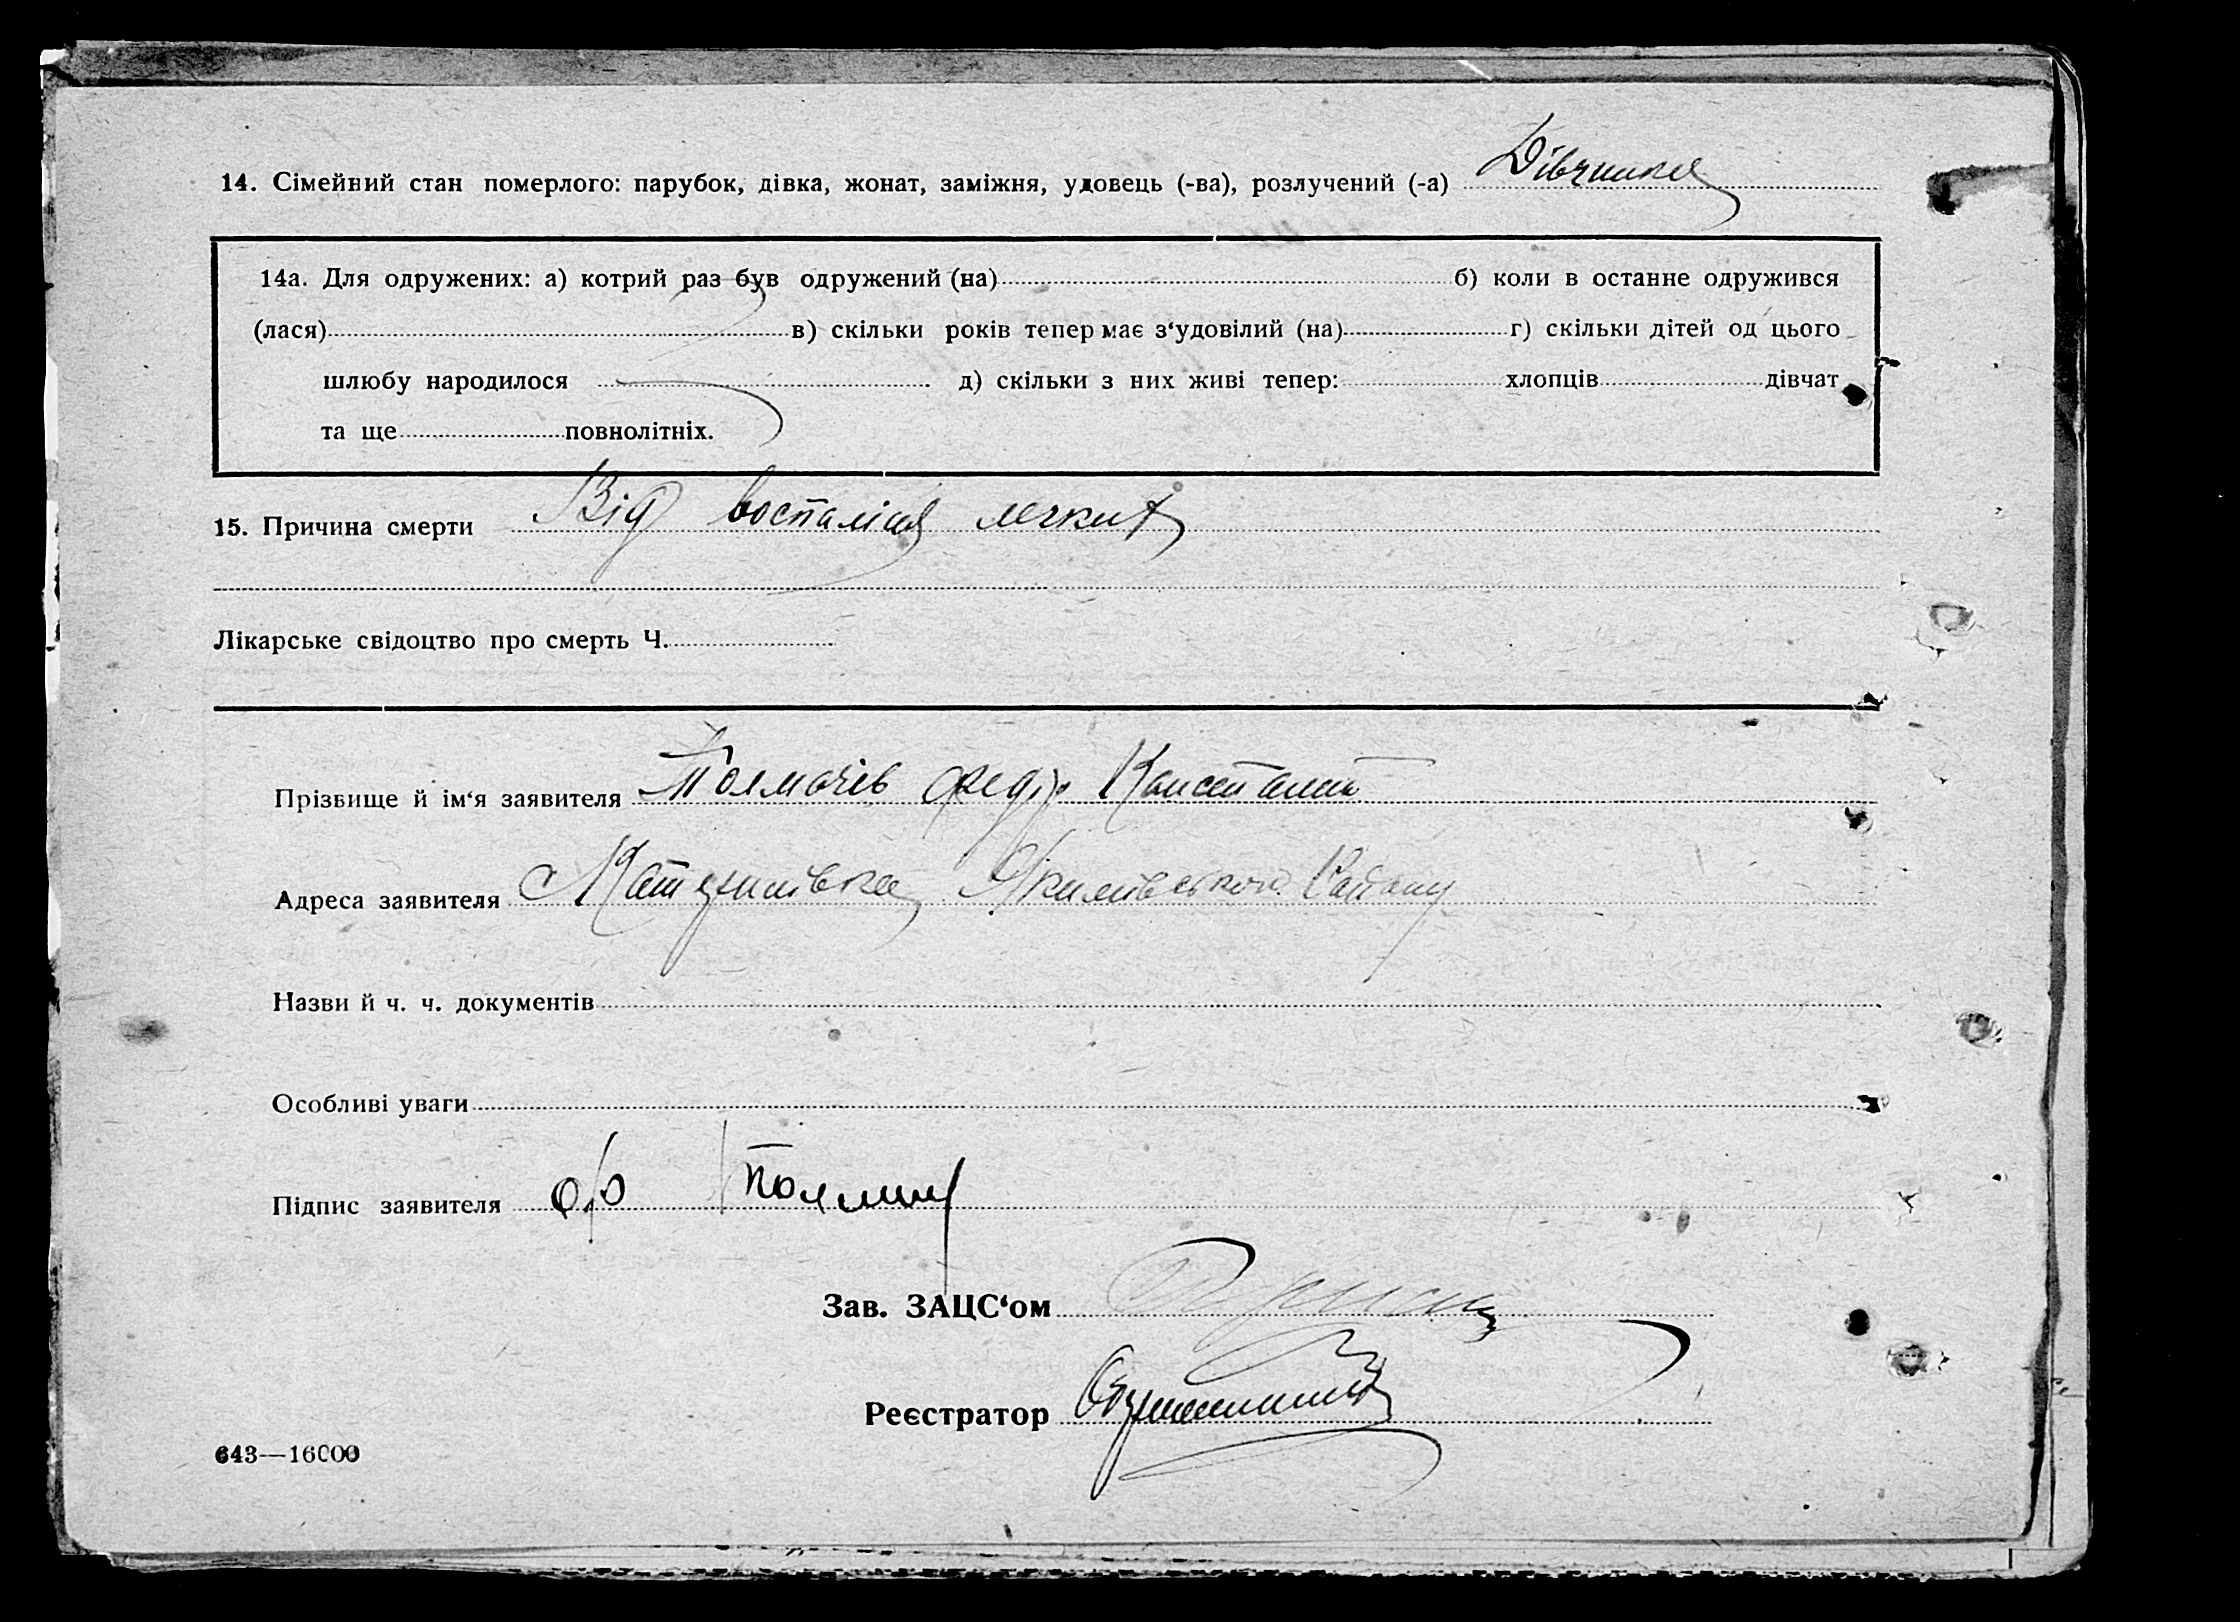 14. Сімейний стан померлого: парубок, дівка, жонат, заміжня, удовець (-ва), розлучений (-а) Дівчинка
14а. Для одружених: а) котрий раз був одружений (на) б) коли в останне одружився
(лася) в) скільки років тепер має з‘удовілий (на) г) скільки дітей од цього
шлюбу народилося д) скільки з них живі тепер: хлопців дівчат
та ще повнолітніх.
15. Причина смерти Від воспаліня легких
Лікарське свідоцтво про смерть Ч.
Прізвище й ім‘я заявителя Толмачів Федір Констант
Адреса заявителя с Матушівка Якимівського Району
Назви й ч. ч. документів
Особливі уваги
Підпис заявителя
Зав. ЗАЦС‘ом
Реєстратор
643—16000